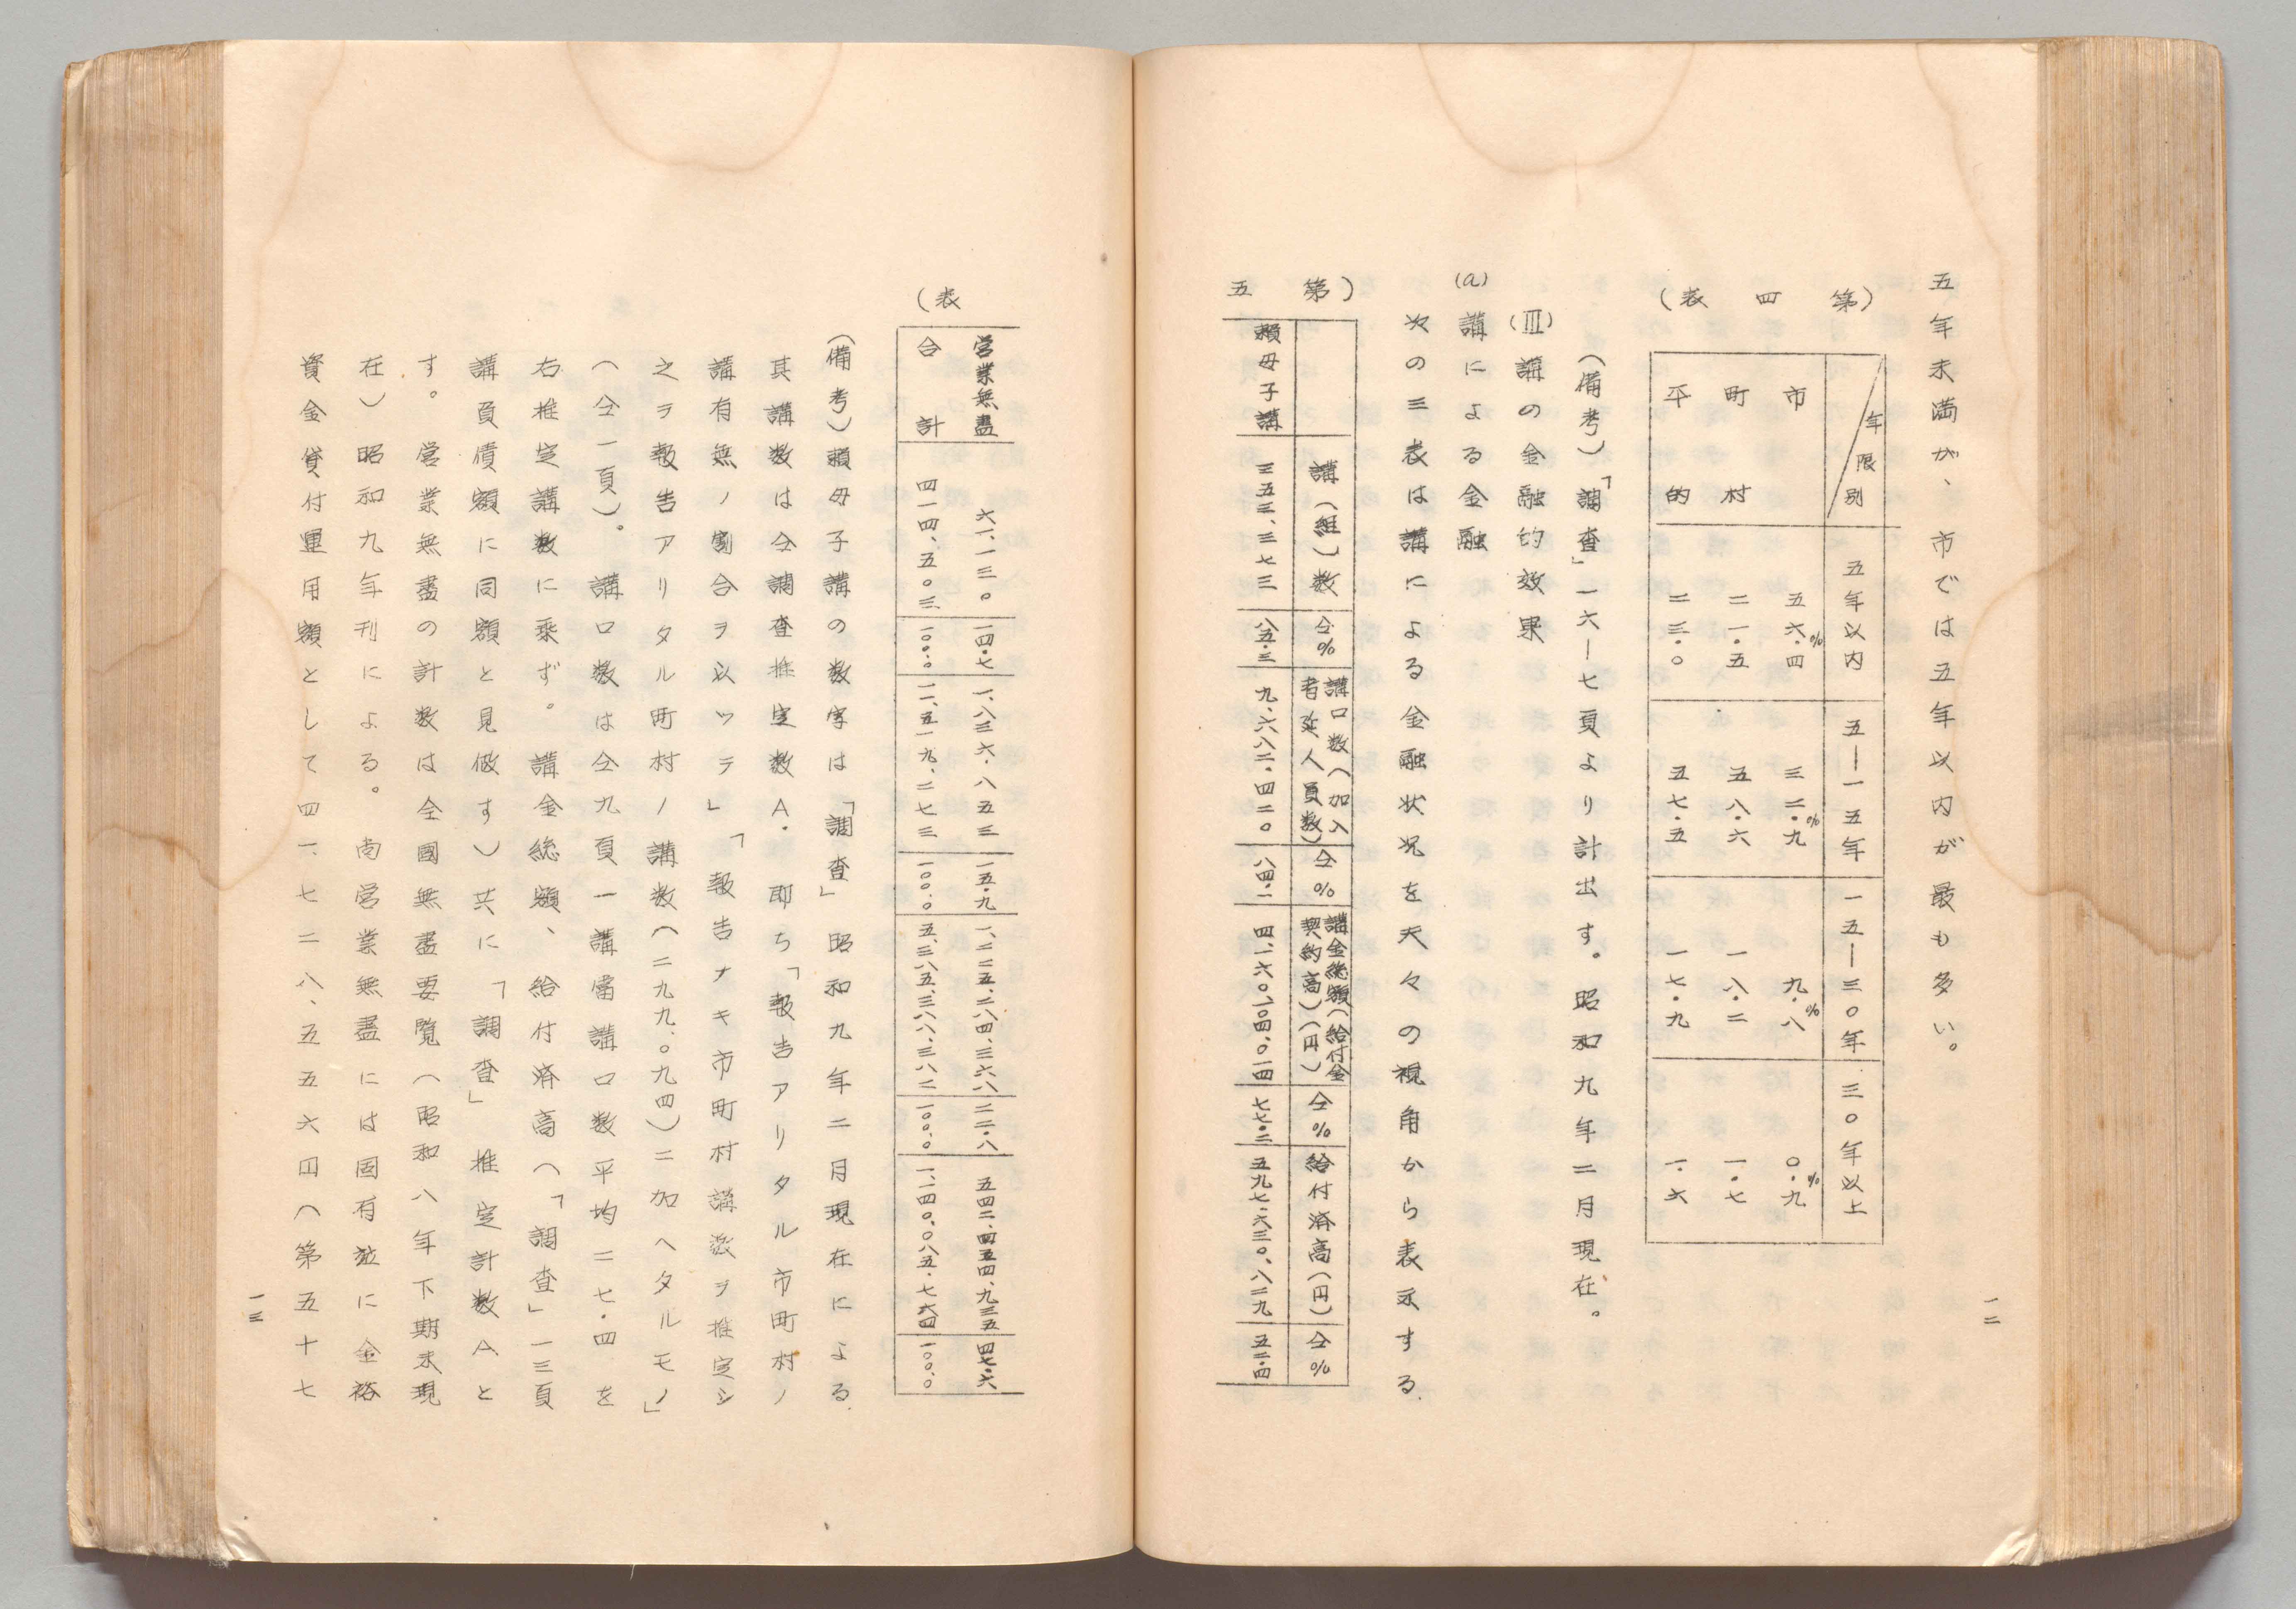 五年未満が、市では五年以内が最も多い。
（第四表）
年限別
五年以内
五―一五年
一五―三〇年
三〇年以上
市 五六・四% 三二・九% 九・八% 〇・九%
町村 二一・五 五八・六 一八・二 一・七
平的 二三・〇 五七・五 一七・九 一・六
（備考）「調査」一六―七頁より計出す。昭和九年二月現在。
(Ⅲ)講の金融的効果
(a)講による金融
次の三表は講による金融状况を夫々の視角から表示する.
（第五
講（組）数
仝%
講口数（加入
者延人員数）
仝%
講金総額（給付金
契約高）（円）
仝%
給付済高（円）
仝%
頼母子講 三五三、三七三 八五・三 九、六八二、四二〇 八四・一 四、一六〇、一〇四、〇一四 七七・二 五九七、六三〇、八二九 五二・四
一二
表）
営業無盡 六一、一三〇 一四・七 一、八三六、八五三 一五・九 一、二二五、二八四、三六八 二二・八 五四二、四五四、九三五 四七・六
合計 四一四、五〇三 一〇〇・〇 一一、五一九、二七三 一〇〇・〇 五、三八五、三八八、三八二 一〇〇・〇 一、一四〇、〇八五、七六四 一〇〇・〇
（備考）頼母子講の数字は「調査」昭和九年二月現在による.
其講数は仝調査推定数A・即ち「報告アリタル市町村ノ
講有無ノ割合ヲ以ッテ」「報告ナキ市町村講数ヲ推定シ
之ヲ報告アリタル町村ノ講数（二九九、〇九四）ニ加ヘタルモノ」
（仝一頁）。講口数は仝九頁一講當講口数平均二七・四を
右推定講数に乘ず。講金総額、給付済高（「調査」一三頁
講負債額に同額と見做す）共に「調査」推定計数A、と
す。営業無盡の計数は全國無盡要覧（昭和八年下期末現
在）昭和九年刊による。尚営業無盡には固有竝に金裕
資金貸付運用額として四一、七二八、五五六円（第五十七
一三